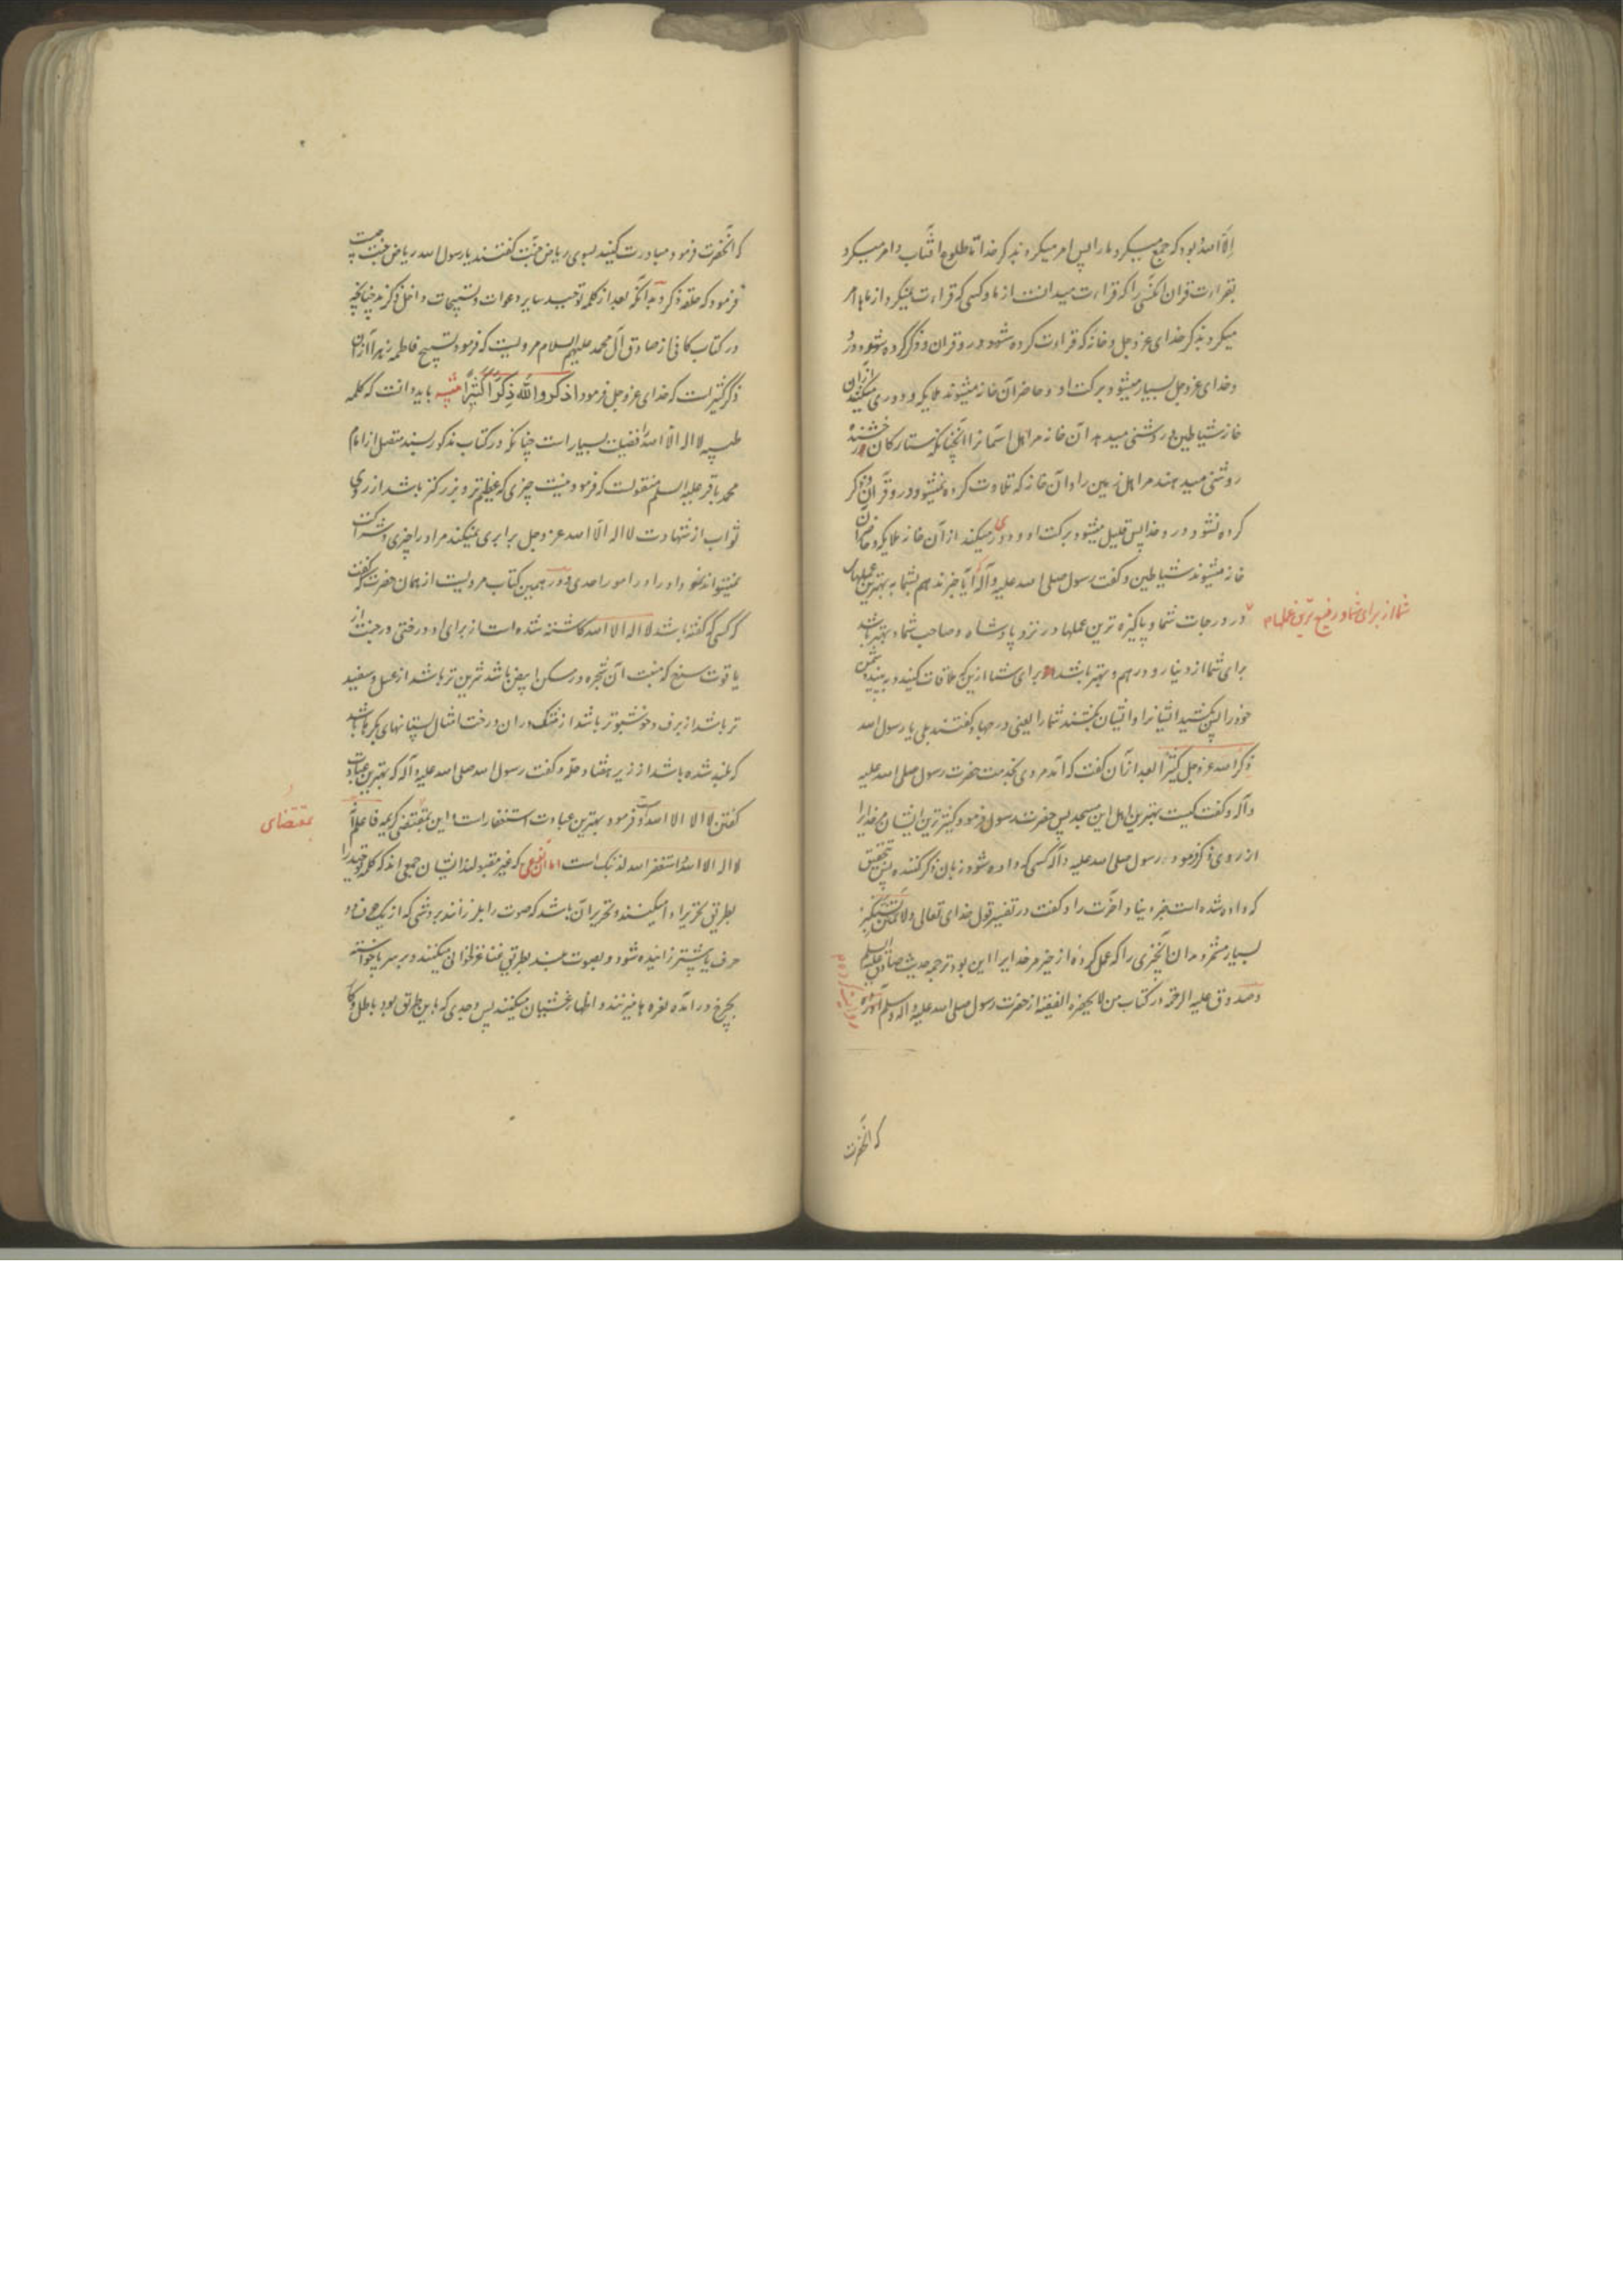 الا الله بود که جمع میکرد ما را پس امر میکرد بذکر خدا تا طلوع افتاب و امر میکرد
بقراءت قران انکسی را که قراءت میدانست از ما و کسی که قراءت نمیکرد از ما امر
میکرد بذکر خدای عز و جل و خانه که قراءت کرده شود در و قران و ذکر کرده شود در و
خدای عز و جل بسیار میشود برکت او و حاضر آن خانه میشوند ملایکه و دوری میکنند ازان
خانه شیاطین و روشنی میدهد آن خانه مر اهل اسمانرا آنچنانکه ستارکان درخشنده
روشنی میدهند مر اهل زمین را و آن خانه که تلاوت کرده نمیشود در و قرآن و ذکر
کرده نشود در و خدا پس قلیل میشود برکت او و دوری میکنند از آن خانه ملایکه و حاضر آن
خانه میشوند شیاطین و کفت رسول صلی الله علیه و آله آیا خبر ندهم بشما به بهترین عملهای
شما از برای شما و رفیع ترین عملها
در درجات شما و پاکیزه ترین عملها در نزد پادشاه و صاحب شما و بهتر باشد
برای شما از دینار و درهم و بهتر باشد برای شما ازین که ملاقات کنید دشمن
خود را پس بکشید ایشانرا و ایشان بکشند شما را یعنی در جهاد کفتند بلی یا رسول الله
ذکر الله عز و جل کثیرا بعد از آن کفت که آمد مردی بخدمت حضرت رسول صلی الله علیه
و آله و کفت کیست بهترین اهل این مسجد پس حضرت رسول فرمود کثیرترین ایشان مر خدایرا
از روی ذکر فرمود رسول صلی الله علیه و آله کسی که داده شود زبان ذکر کننده پس بتحقیق
که داده شده است خیر دنیا و اخرت را و کفت در تفسیر قول خدای تعالی و لا تمنن تستکثر
بسیار مشمر و مدان آنچیزی را که عمل کرده از خیر مر خدایرا این بود ترجمه حدیث صادق علیه السلم
و صدوق علیه الرحمه در کتاب من لا یحضره الفقیه از حضرت رسول صلی الله علیه و اله و سلم آورده
که انحضرت
که آنحضرت فرمود مبادرت کنید بسوی ریاض جنت کفتند یا رسول الله ریاض جنت چیست
فرمود که حلقه ذکر بدانکه بعد از کلمه توحید سایر دعوات و تسبیحات داخل ذکرند چنانچه
در کتاب کافی از صادق آل محمد علیهم السلام مرویست که فرمود تسبیح فاطمه زهرا از آن
ذکر کثیر است که خدای عز و جل فرمود اذکروا الله ذکرا کثیرا تنبیه باید دانست که کلمه
طیبه لا اله الا الله را فضیلت بسیار است چنانکه در کتاب مذکور بسند متصل از امام
محمد باقر علیه السلم منقولست که فرمود نیست چیزی که عظیم تر و بزرکتر باشد از روی
ثواب از شهادت لا اله الا الله عز و جل برابری نمیکند مر او را چیزی و شراکت
نمیتواند نمود او را در امور احدی و در همین کتاب مرویست از همان حضرت که کفت
که کسی که کفته باشد لا اله الا الله کاشته شده است از برای او درختی در جنت از
یاقوت سرخ که منبت آن شجره در مسک ابیض باشد شیرین تر باشد از عسل و سفید
تر باشد از برف و خوشبوتر باشد از مشک دران درخت امثال پستانهای بکرها باشد
که بلند شده باشد از زیر هفتاد حله و کفت رسول الله صلی الله علیه و آله که بهترین عبادت
کفتن لا اله الا الله است و فرمود بهترین عبادت استغفار است و این بمقتضی کریمه فاعلم انه
بمقتضای
لا اله الا الله و استغفر الله لذنبک است اما آنجمعی که غیر مقبولند ایشان جمعی اند که کلمه توحید را
بطریق تحریر ادا میکنند و تحریر آن باشد که صوت را بلرزانند بروشی که از یک حرف دو
حرف یا بیشتر زاییده شود و بصوت بلند بطریق غنا غزلخوانی میکنند و بر سر پا خواسته
بچرخ در آمده نعره ها میزنند و اظهار غشیان میکنند پس وجدی که باین طریق بود باطل و